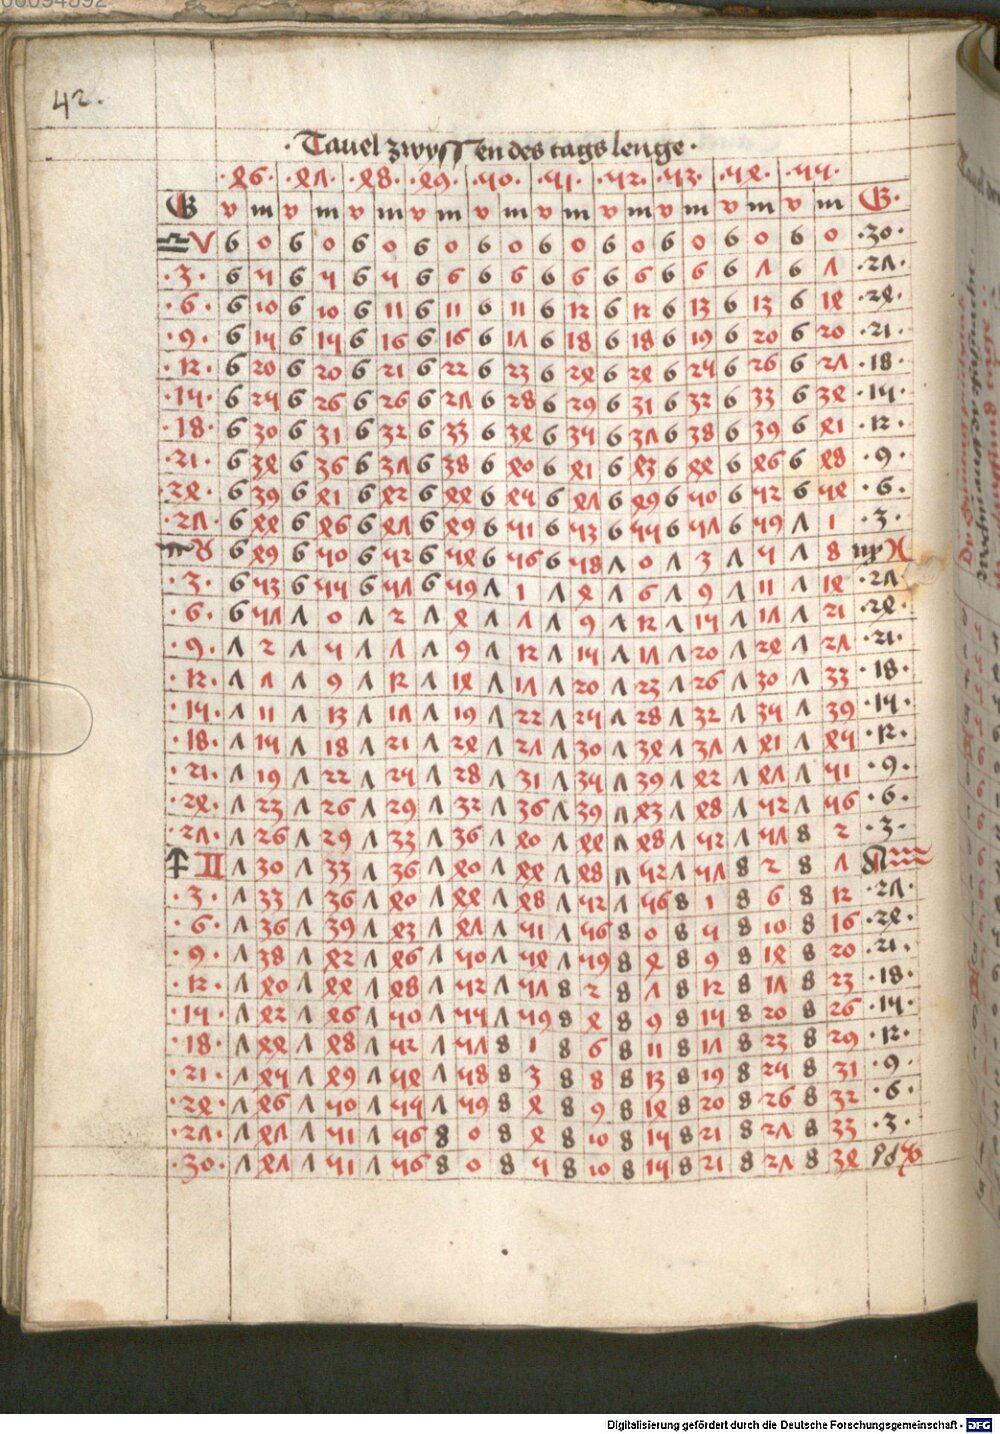 42.
· Tauel zwyssen des tags lenge ·
· 46 · · 47 · · 48 · · 49 · · 50 · · 51 · · 52 · · 53 · · 54 · · 55 ·
G v m v m v m v m v m v m v m v m v m v m G ·
♎ ♈ 6 0 6 0 6 0 6 0 6 0 6 0 6 0 6 0 6 0 6 0 · 30 ·
· 3 · 6 5 6 5 6 5 6 6 6 6 6 6 6 6 6 6 6 7 6 7 · 27 ·
· 6 · 6 10 6 10 6 11 6 11 6 11 6 12 6 12 6 13 6 13 6 14 · 24 ·
· 9 · 6 15 6 15 6 16 6 16 6 17 6 18 6 18 6 19 6 20 6 20 · 21 ·
· 12 · 6 20 6 20 6 21 6 22 6 23 6 24 6 24 6 25 6 26 6 27 · 18 ·
· 15 · 6 25 6 26 6 26 6 27 6 28 6 29 6 31 6 32 6 33 6 34 · 15 ·
· 18 · 6 30 6 31 6 32 6 33 6 34 6 35 6 37 6 38 6 39 6 41 · 12 ·
· 21 · 6 34 6 36 6 37 6 38 6 40 6 41 6 43 6 44 6 46 6 48 · 9 ·
· 24 · 6 39 6 41 6 42 6 44 6 45 6 47 6 49 6 50 6 52 6 54 · 6 ·
· 27 · 6 44 6 46 6 47 6 49 6 51 6 53 6 55 6 57 6 59 7 1 · 3 ·
♏ ♉ 6 49 6 50 6 52 6 54 6 56 6 58 7 0 7 3 7 5 7 8 ♍ ♓
· 3 · 6 53 6 55 6 57 6 59 7 1 7 4 7 6 7 9 7 11 7 14 · 27 ·
· 6 · 6 57 7 0 7 2 7 4 7 7 7 9 7 12 7 15 7 17 7 21 · 24 ·
· 9 · 7 2 7 5 7 7 7 9 7 12 7 15 7 17 7 20 7 24 7 27 · 21 ·
· 12 · 7 7 7 9 7 12 7 14 7 17 7 20 7 23 7 26 7 30 7 33 · 18 ·
· 15 · 7 11 7 13 7 17 7 19 7 22 7 25 7 28 7 32 7 35 7 39 · 15 ·
· 18 · 7 15 7 18 7 21 7 24 7 27 7 30 7 34 7 37 7 41 7 45 · 12 ·
· 21 · 7 19 7 22 7 25 7 28 7 31 7 35 7 39 7 42 7 47 7 51 · 9 ·
· 24 · 7 23 7 26 7 29 7 32 7 36 7 39 7 43 7 48 7 52 7 56 · 6 ·
· 27 · 7 26 7 29 7 33 7 36 7 40 7 44 7 48 7 52 7 57 8 2 · 3 ·
♐ ♊ 7 30 7 33 7 36 7 40 7 44 7 48 7 52 7 57 8 2 8 7 ♌ ♒
· 3 · 7 33 7 36 7 40 7 44 7 48 7 52 7 56 8 1 8 6 8 12 · 27 ·
· 6 · 7 36 7 39 7 43 7 47 7 51 7 56 8 0 8 5 8 10 8 16 · 24 ·
· 9 · 7 38 7 42 7 46 7 50 7 54 7 59 8 4 8 9 8 14 8 20 · 21 ·
· 12 · 7 40 7 44 7 48 7 52 7 57 8 2 8 7 8 12 8 17 8 23 · 18 ·
· 15 · 7 42 7 46 7 50 7 55 7 59 8 4 8 9 8 15 8 20 8 26 · 15 ·
· 18 · 7 44 7 48 7 52 7 57 8 1 8 6 8 11 8 17 8 23 8 29 · 12 ·
· 21 · 7 45 7 49 7 54 7 58 8 3 8 8 8 13 8 19 8 25 8 31 · 9 ·
· 24 · 7 46 7 50 7 55 7 59 8 4 8 9 8 14 8 20 8 26 8 32 · 6 ·
· 27 · 7 47 7 51 7 56 8 0 8 4 8 10 8 15 8 21 8 27 8 33 · 3 ·
· 30 · 7 47 7 51 7 56 8 0 8 5 8 10 8 15 8 21 8 27 8 34 ♋ ♑
Digitalisierung gefördert durch die Deutsche Forschungsgemeinschaft · DFG